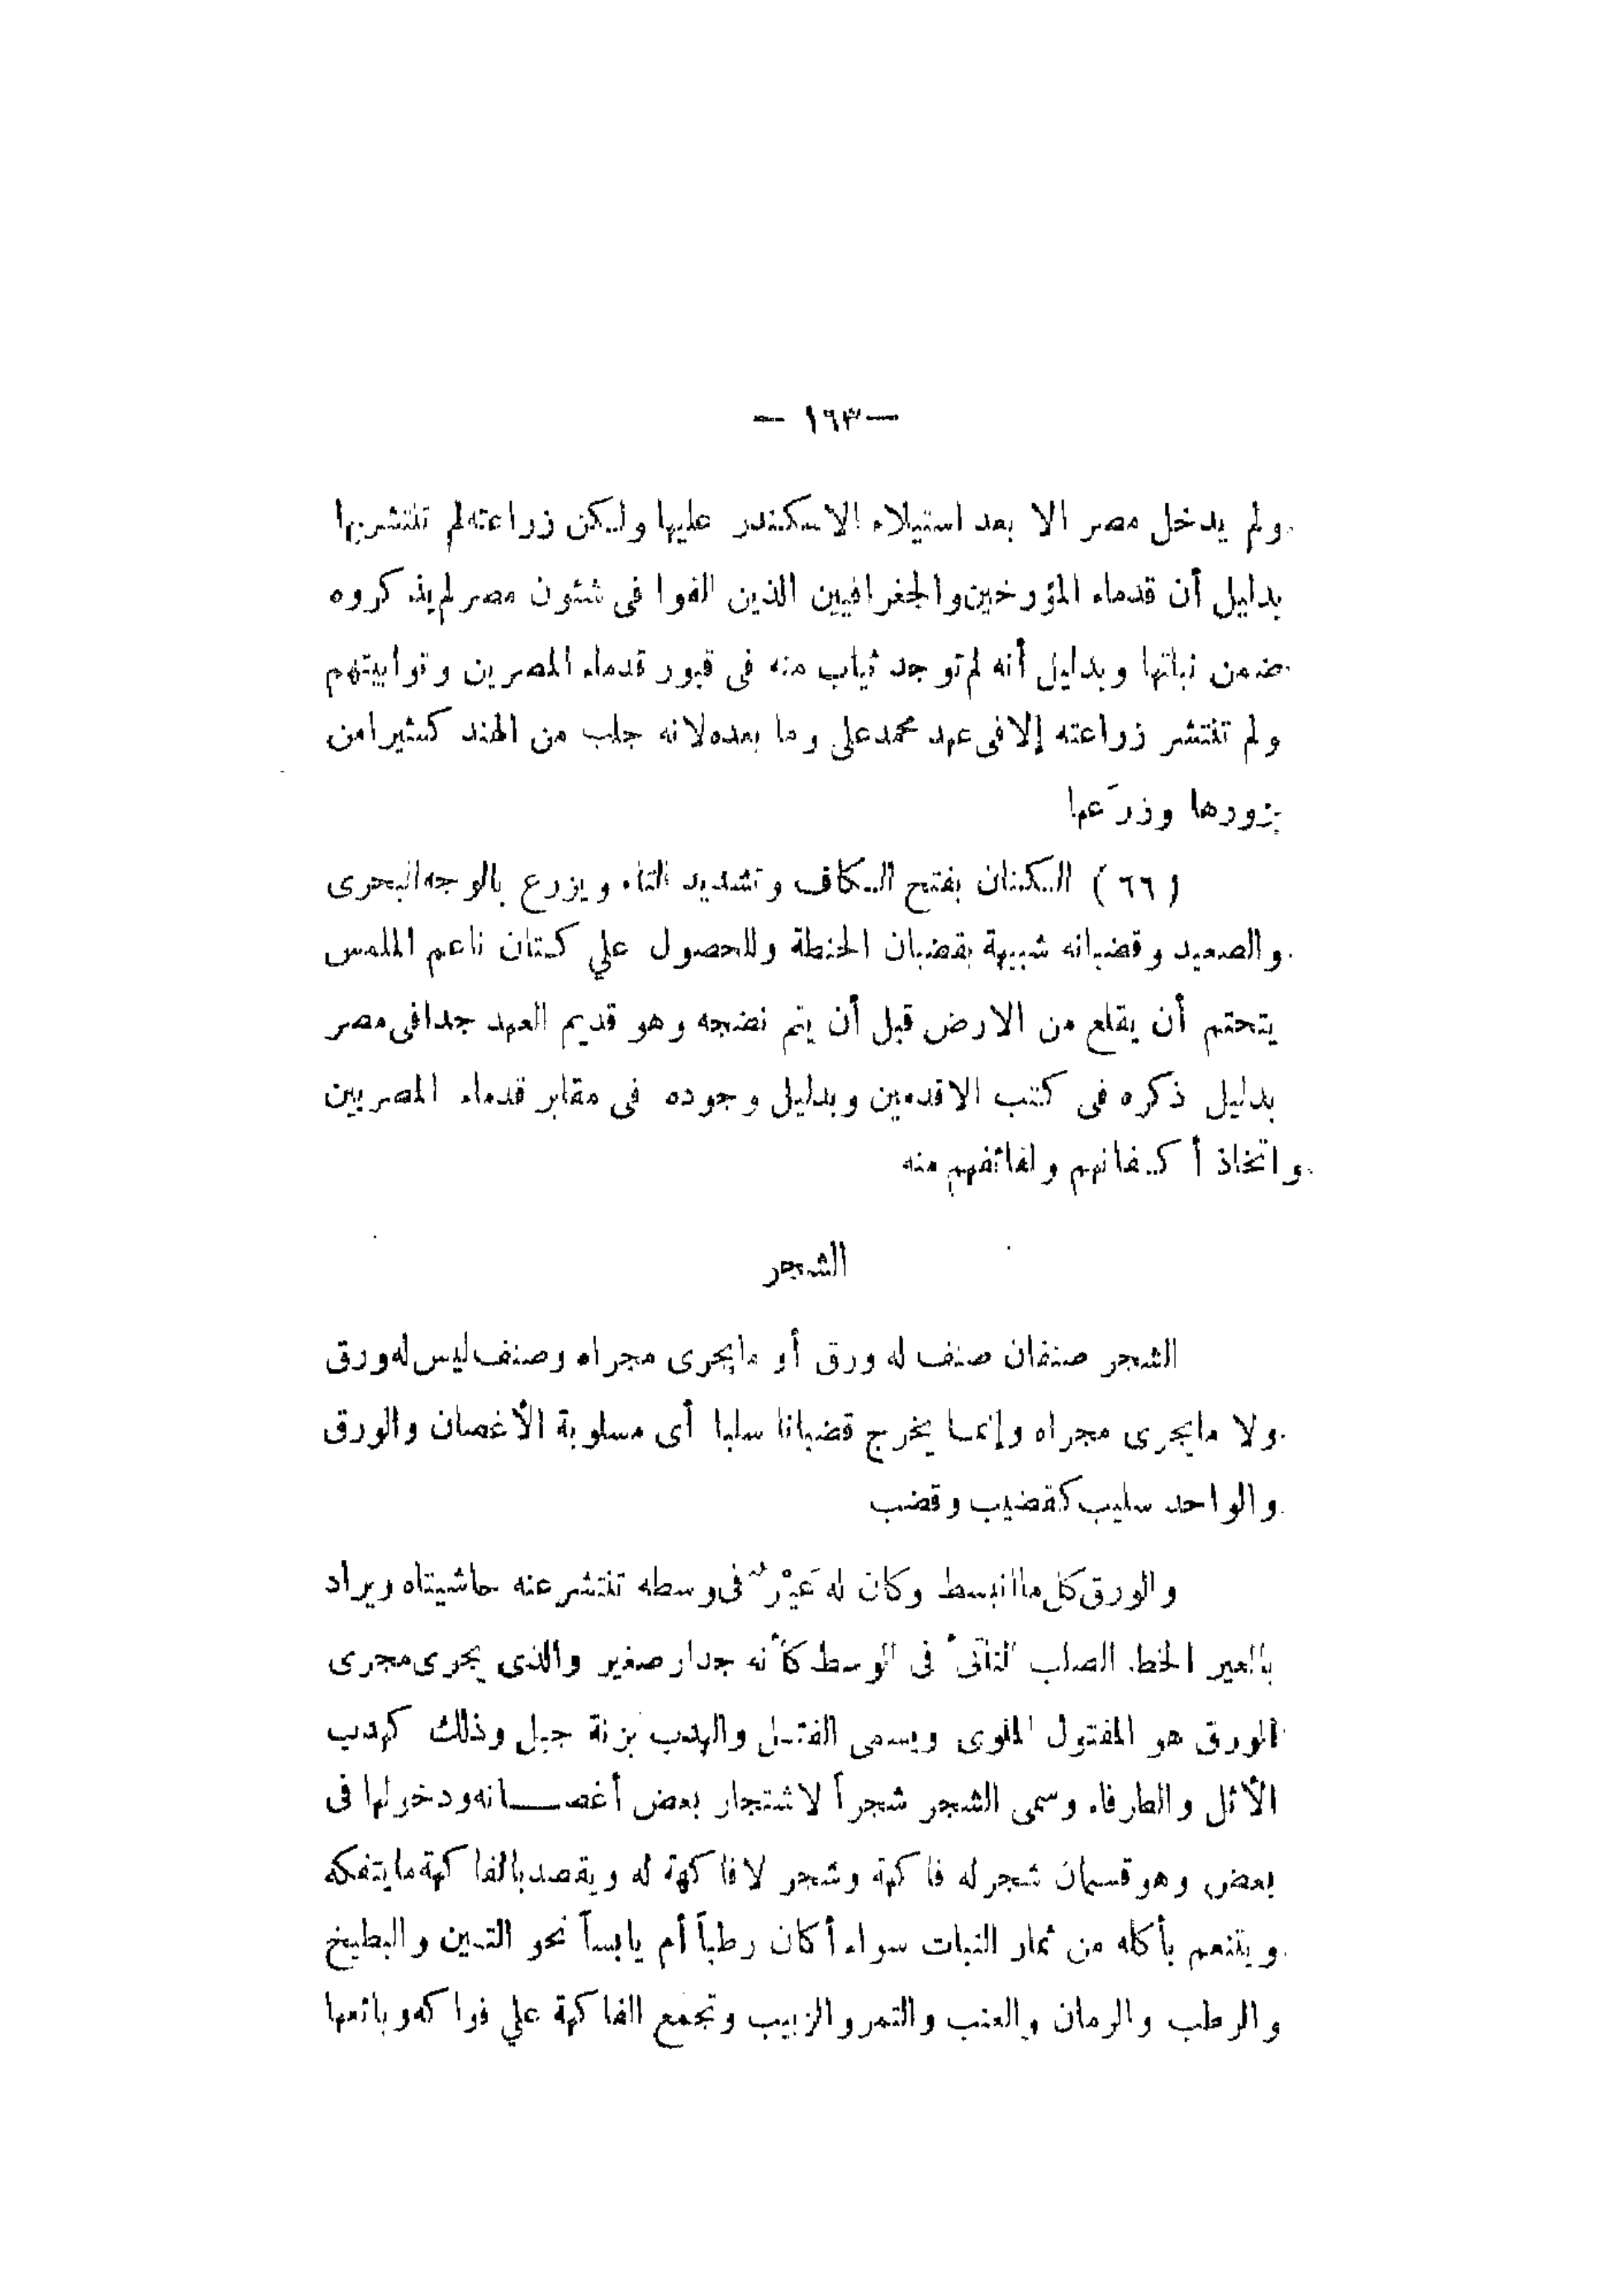 — ١٦٣ —
ولم يدخل مصر الا بعد استيلاء الاسكندر عليها ولكن زراعته لم تنتشر بها
بدليل أن قدماء المؤرخين والجغرافيين الذين الفوا فى شئون مصر لم يذكروه
ضمن نباتها وبدليل أنه لم توجد ثياب منه فى قبور قدماء المصرين وتوابيتهم
ولم تنتشر زراعته إلا فى عهد محمد على وما بعده لانه جلب من الهند كثيرا من
بزورها وزرَعها
( ٦٦ ) الكتان بفتح الكاف وتشديد التاء ويزرع بالوجه البحرى
والصعيد وقضبانه شبيهة بقضبان الحنطة وللحصول علي كتان ناعم الملمس
يتحتم أن يقلع من الارض قبل أن يتم نضجه وهو قديم العهد جدا فى مصر
بدليل ذكره فى كتب الاقدمين وبدليل وجوده فى مقابر قدماء المصريين
واتخاذ أكفانهم ولفائفهم منه
الشجر
الشجر صنفان صنف له ورق أو مايجرى مجراه وصنف ليس له ورق
ولا مايجرى مجراه وإنما يخرج قضبانا سلبا أى مسلوبة الأغصان والورق
والواحد سليب كقضيب وقضب
والورق كل ما انبسط وكان له عَيْرٌ فى وسطه تنتشر عنه حاشيتاه ويراد
بالعير الخط الصلب الناتئ فى الوسط كأنه جدار صغير والذى يجرى مجرى
الورق هو المفتول الملوى ويسمى الفتل والهدب بزنة جبل وذلك كهدب
الأثل والطرفاء وسمى الشجر شجراً لاشتجار بعض أغصانه ودخولها فى
بعض وهو قسمان شجر له فاكهة وشجر لا فاكهة له ويقصد بالفاكهة ما يتفكه
ويتنعم بأكله من ثمار النبات سواء أكان رطباً أم يابساً نحو التين والبطيخ
والرطب والرمان والعنب والتمر والزبيب وتجمع الفاكهة علي فواكه وبائعها